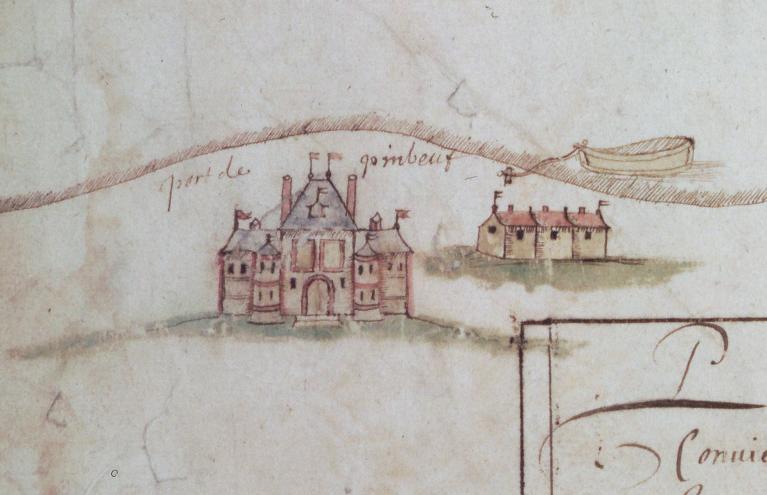 port de pinbeuf
P
Conuie